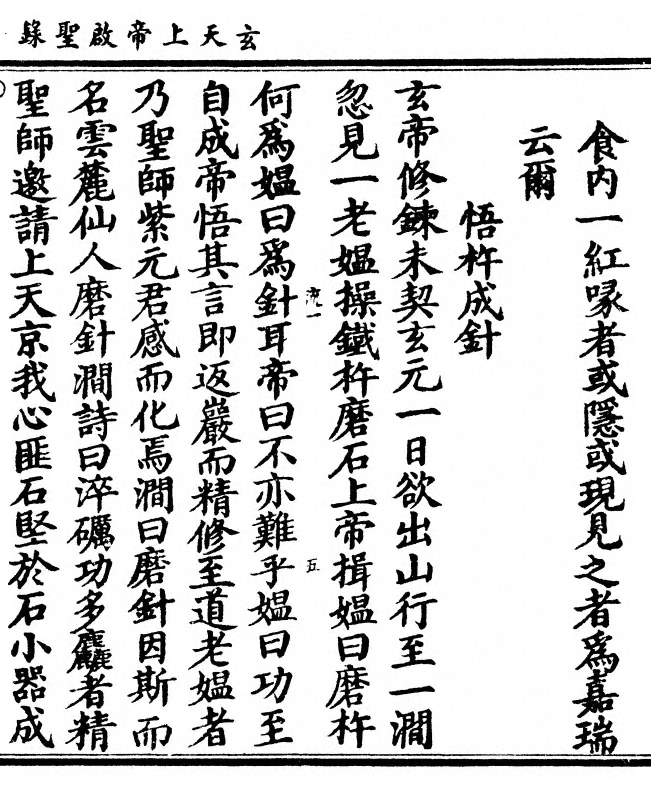 玄天上帝啟聖錄
食內一紅喙者或隱或現見之者爲嘉瑞
云爾
悟杵成針
玄帝修鍊未契玄元一日欲出山行至一澗
忽見一老媼操鐵杵磨石上帝揖媼曰磨杵
何爲媼曰爲針耳帝曰不亦難乎媼曰功至
流一
五
自成帝悟其言即返巖而精修至道老媼者
乃聖師紫元君感而化焉澗曰磨針因斯而
名雲麓仙人磨針澗詩曰淬礪功多麤者精
聖師邀請上天京我心匪石堅於石小器成